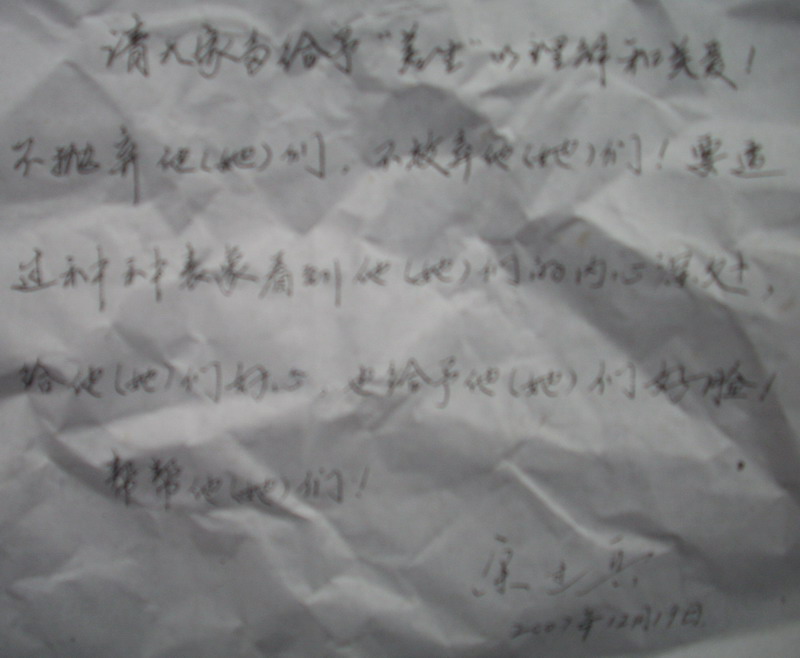 请大家多给予“差生”的理解和关爱！
不抛弃他(她)们，不放弃他(她)们！要透
过种种表象看到他(她)们的内心深处，
给他(她)们好心，也给予他(她)们好脸！
帮帮他(她)们！
2007年12月19日